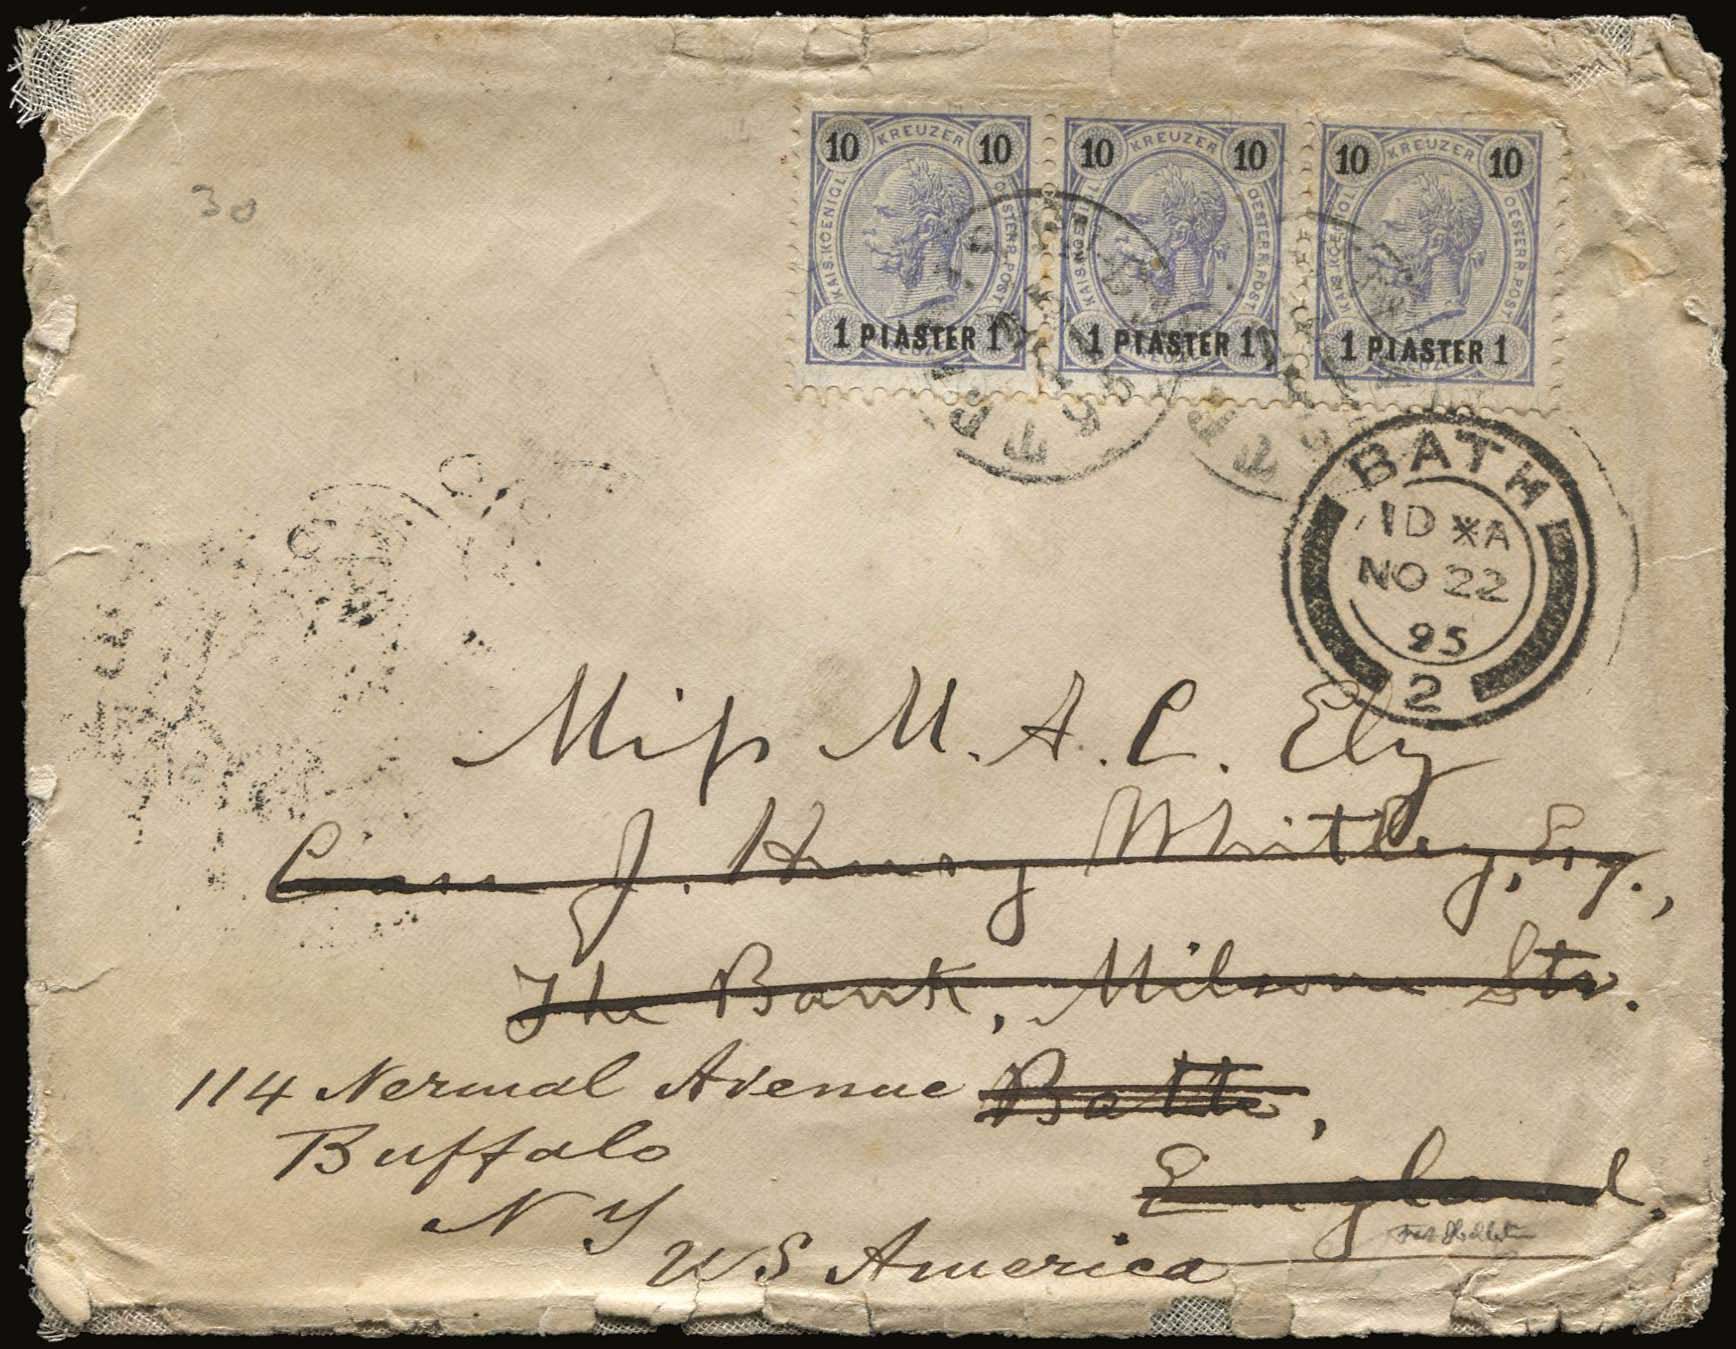 10 KREUZER 10 10 KREUZER 10 10 KREUZER 10
KAIS. KOENIGL. OESTERR. POST KAIS. KOENIGL. OESTERR. POST KAIS. KOENIGL. OESTERR. POST
1 PIASTER 1 1 PIASTER 1 1 PIASTER 1
30
BATH
1D A
NO 22
95
2
Miss M. A. C. Ely
Care J. Henry Whitley, Esq.,
The Bank, Milsom Str.
114 Normal Avenue Bath,
Buffalo
England.
N Y
U S America